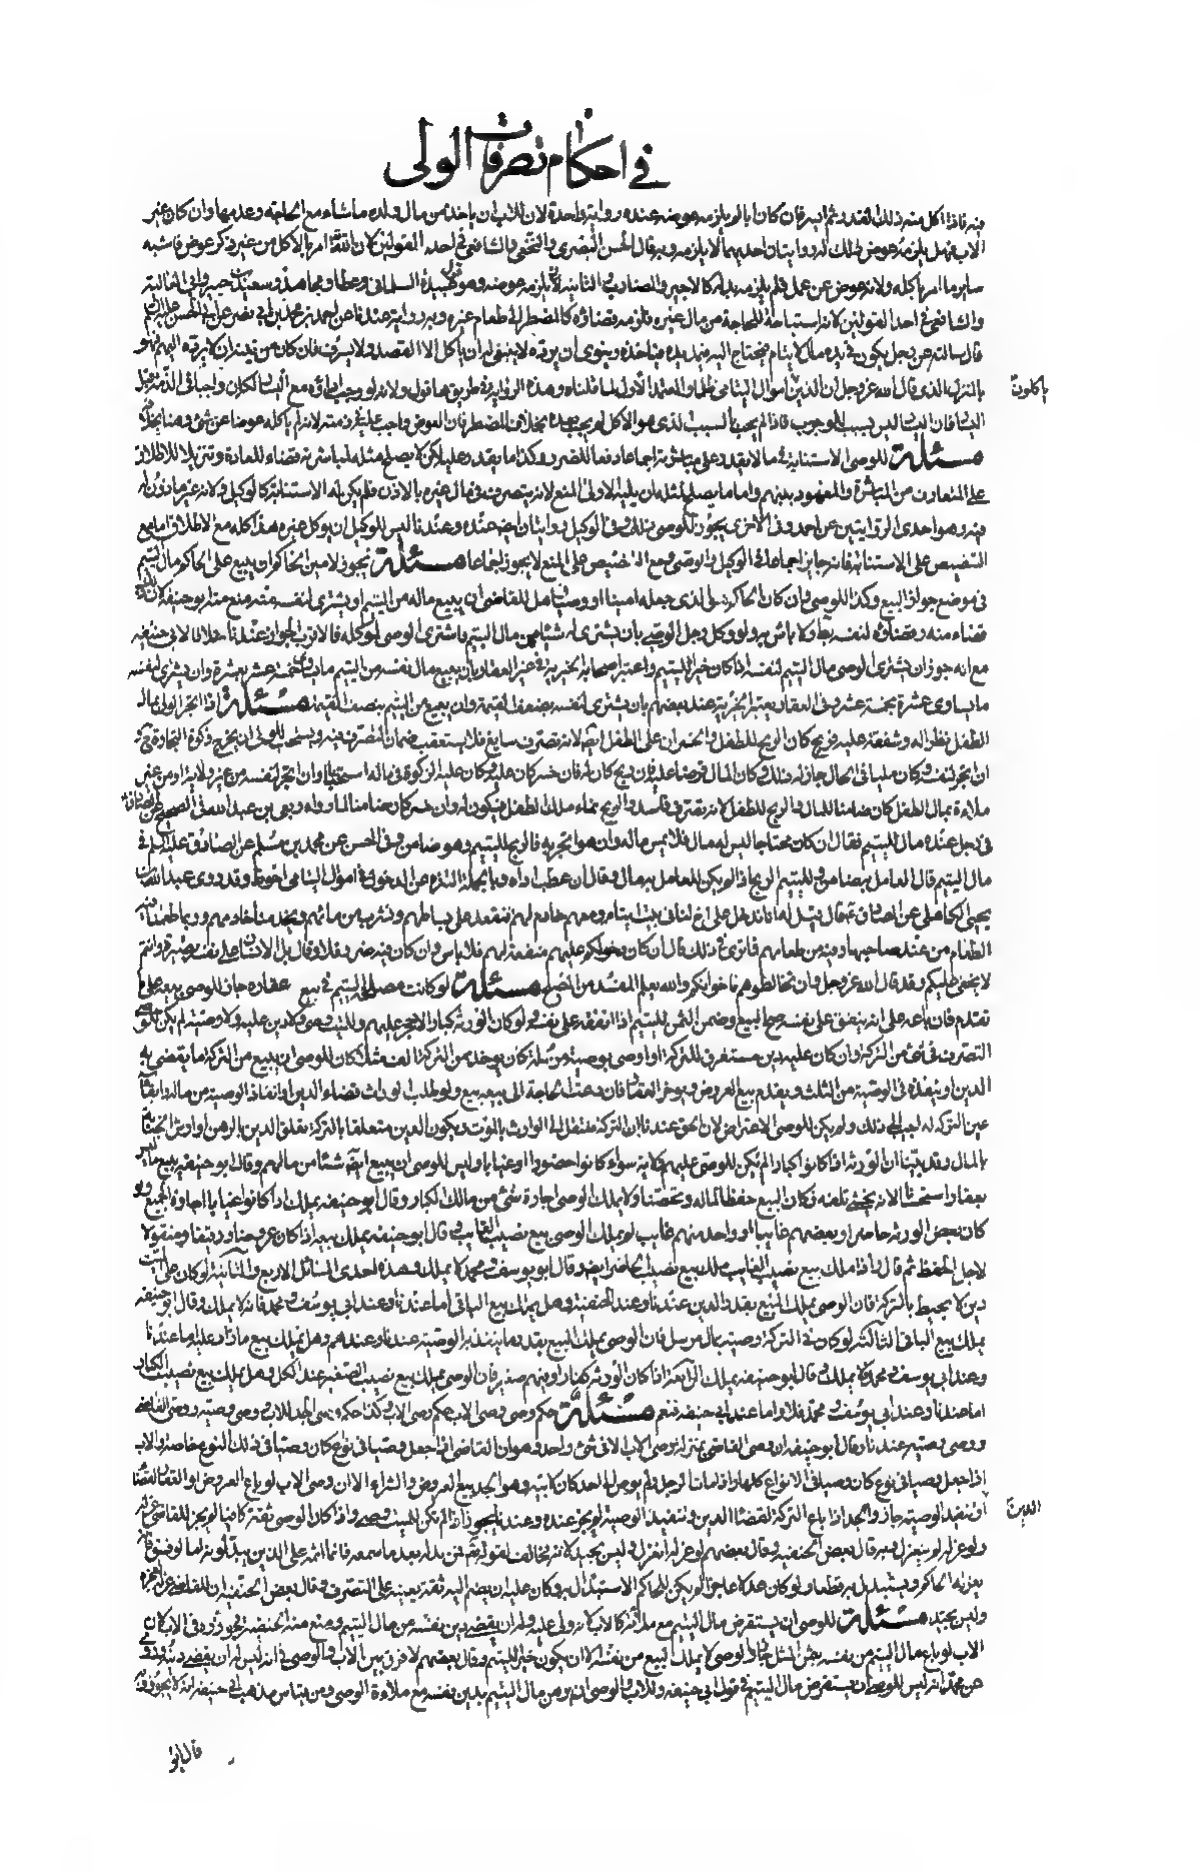 في احكام تصرفات الولى
منه فاذا اكل منه ذلك القدر ثم ايسر فان كان ابا لم يلزمه عوضه عنده رواية واحدة لان للاب ان ياخذ من مال ولده ما شاء مع الحاجة وعدمها وان كان غير
الاب فهل يلزمه عوض ذلك له روايتان احديهما لا يلزمه وبه قال الحسن البصري والنخعي والشافعي في احد القولين لان الله تعالى امر بالاكل من غير ذكر عوض فاشبه
ساير ما امر باكله ولانه عوض عن عمل فلم يلزمه بدله كالاجير والمضارب والثانية انه يلزمه عوضه وهو قول عبيدة السلماني وعطا ومجاهد وسعيد بن جبير وابي العالية
والشافعي في احد القولين لانه استباحة للحاجة من مال غيره فلزمه قضاؤه كالمضطر الى طعام غيره وبه رواية عندنا عن احمد بن محمد بن ابي نصر عن ابي الحسن عليه السلم
قال سالته عن رجل يكون في يده مال لايتام فيحتاج اليه فيمد يده فياخذه وينوى ان يرده قال لا ينبغي له ان ياكل الا القصد ولا يسرف فان كان من نيته ان لا يرده اليهم فهو
بالمنزل الذى قال الله عز وجل ان الذين اموال اليتامى ظلما والمعتمد الاول لما قلناه وهذه الرواية في طريقها قول ولانه لو وجب اداؤه مع اليسار لكان واجبا في الذمة قبل
ياكلون
اليسار فان اليسار ليس بسبب للوجوب فاذا لم يجب بالسبب الذى هو الاكل لم يجب بعده بخلاف المضطر فان العوض واجب عليه في ذمته لانه لم ياكله عوضا عن شئ وهنا بخلافه
مسئلة للوصى الاستنابة في ما لا يقدر على مباشرته اجماعا دفعا للضرر وكذا ما يقدر عليه لكن لا يصلح مثله لمباشرته قضاء للعادة وتنزيلا للاطلاق
على المتعارف من المباشرة والمعهود بينهم واما ما يصلح لمثله ان يليه الاولى المنع لانه يتصرف في مال غيره بالاذن فلم يكن له الاستنابة كالوكيل ولانه غير ماذون له
فيه وهو احدى الروايتين عن احمد وفى الاخرى يجوز للوصى ذلك وفى الوكيل روايتان ايضا عنده وعندنا ليس للوكيل ان يوكل غيره هذا كله مع الاطلاق اما مع
التنصيص على الاستنابة فانه جايز اجماعا في الوكيل والوصى ومع التنصيص على المنع لا يجوز اجماعا مسئلة يجوز لامين الحاكم ان يبيع على الحاكم مال اليتيم
في موضع جواز البيع وكذا للوصى وان كان الحاكم هو الذى جعله امينا او وصيا وهل للقاضى ان يبيع ماله من اليتيم او يشترى لنفسه منه منع منه ابو حنيفة لان ذلك
قضاء منه وقضاؤه لنفسه باطل ولا باس به ولو وكل رجل الوصى بان يشترى له شيئا من مال اليتيم فاشترى الوصى لموكله فالاقرب الجواز عندنا خلافا لابى حنيفة
مع انه جوز ان يشترى الوصى مال اليتيم لنفسه اذا كان خيرا لليتيم واعتبر اصحابه الخيرية في غير العقار بان يبيع مال نفسه من اليتيم ما يساوى خمسة عشر بعشرة وان يشترى لنفسه
ما يساوى عشرة بخمسة عشر وفى العقار يعتبر الخيرية عند بعضهم بان يشترى لنفسه بضعف القيمة وان يبيع من اليتيم بنصف القيمة مسئلة اذا اتجر الولى بمال
الطفل نظرا له وشفقة عليه فربح كان الربح للطفل والخسران على الطفل ايضا لانه تصرف سايغ فلا يستعقب ضمان المتصرف فيه ويستحب للولى ان يخرج زكوة التجارة فيه
ان اتجر لنفسه وكان مليا في الحال جاز له ذلك وكان المال قرضا عليه فان ربح كان له فان خسر كان عليه وكان عليه الزكوة في ماله استحبابا وان اتجر لنفسه من غير ولاية او من غير
ملاءة بمال الطفل كان ضامنا للمال والربح للطفل لانه تصرف فاسد والربح نماء ملك الطفل فيكون له وان خسر كان ضامنا لما رواه ربعى بن عبد الله في الصحيح عن الصادق
في رجل عنده مال لليتيم فقال ان كان محتاجا ليس له مال فلا يمس ماله وان هو اتجر به فالربح لليتيم وهو ضامن وفى الحسن عن محمد بن مسلم عن الصادق عليه السلم في
مال اليتيم قال العامل به ضامن ولليتيم الربح اذا لم يكن للعامل به مال وقال ان عطب اداه وبالجملة التنزه عن الدخول في اموال اليتامى احوط وقد روى عبد الله بن
يحيى الكاهلى عن الصادق قال قيل له انا ندخل على اخ لنا في بيت ايتام ومعهم خادم لهم فنقعد على بساطهم ونشرب من مائهم ويخدمنا خادمهم وربما طعمنا فيه
الطعام من عند صاحبنا وفيه من طعامهم فما ترى في ذلك قال ان كان دخولكم عليهم منفعة لهم فلا باس وان كان فيه ضرر فلا وقال بل الانسان على نفسه بصيرة وانتم
لا يخفى عليكم وقد قال الله عز وجل وان تخالطوهم فاخوانكم والله يعلم المفسد من المصلح مسئلة لو كانت مصلحة اليتيم في بيع عقاره جاز للوصى بيعه على ما
تقدم فان باعه على انه ينفق على نفسه صح البيع وضمن الثمن لليتيم اذا انفقه على نفسه ولو كان الورثة كبارا لا حجر عليهم وللميت وصى ولا دين عليه ولا وصية لم يكن للوصى
التصرف في شئ من التركة وان كان عليه دين مستغرق للتركة او اوصى بوصية مرسلة كان يوخذ من التركة الف مثلا كان للوصى ان يبيع من التركة ما يقضى به
الدين او ينفذه في الوصية من الثلث ويقدم بيع العروض ويوخر العقار فان دعت الحاجة الى بيعه بيع ولو طلب الوارث قضاء الدين او انفاذ الوصية من ماله وابقاء
عين التركة له اجيب الى ذلك ولم يكن للوصى الاعتراض لان الحق عندنا ان التركة تنتقل الى الوارث بالموت ويكون الدين متعلقا بالتركة تعلق الدين بالرهن او ارش الجناية
بالمال وقد بينا ان الورثة اذا كانوا كبارا لم يكن للوصى عليهم ولاية سواء كانوا حضورا او غيابا وليس للوصى ان يبيع ايضا شيئا من مالهم وقال ابو حنيفة يبيع ما ليس
بعقار استحسانا لانه يخشى تلفه فكان البيع حفظا لماله وتحصينا ولا يملك الوصى اجارة شئ من مالك الكبار وقال ابو حنيفة يملك اذا كانوا غيابا اجارة الجميع ولو
كان بعض الورثة حاضرا وبعضهم غايبا او واحد منهم غايب لم يملك الوصى بيع نصيب الغايب وقال ابو حنيفة يملك بيعه اذا كان عروضا ورقيقا ومنقولا
لاجل الحفظ ثم قال واذا ملك بيع نصيب الغايب ملك بيع نصيب الحاضر ايضا وقال ابو يوسف ومحمد لا يملك وهذه احدى المسائل الاربع والثانية لو كان على الميت
دين لا يحيط بالتركة فان الوصى يملك البيع بقدر الدين عندنا وعند الحنفية وهل يملك بيع الباقى اما عندنا وعند ابى يوسف ومحمد فانه لا يملك وقال ابو حنيفة
يملك بيع الباقى الثالثة لو كان في التركة وصية بمال مرسل فان الوصى يملك البيع بقدر ما ينفذ به الوصية عندنا وعندهم وهل يملك بيع ما زاد عليه اما عندنا
وعند ابى يوسف ومحمد لا يملك وقال ابو حنيفة يملك الرابعة اذا كان الورثة كبارا وفيهم صغير فان الوصى يملك بيع نصيب الصغير عند الكل وهل يملك بيع نصيب الكبار
اما عندنا وعند ابى يوسف ومحمد فلا واما عند ابى حنيفة فنعم مسئلة حكم وصى وصى الاب حكم وصى الاب وكذا حكم وصى الجد للاب ووصى وصيه ووصى القاضى
ووصى وصيه عندنا وقال ابو حنيفة ان وصى القاضى بمنزلة وصى الاب الا في شئ واحد وهو ان القاضى اذا جعل وصيا في نوع كان وصيا في ذلك النوع خاصة والاب
اذا جعل وصيا في نوع كان وصيا في الانواع كلها واذا مات الرجل ولم يوص الى احد كان لابيه وهو الجد بيع العروض والشراء الا ان وصى الاب لو باع العروض او العقار لقضاء
او تنفيذ الوصية جاز والجد اذا باع التركة لقضاء الدين وتنفيذ الوصية لم يجز عنده وعندنا يجوز اذا لم يكن للميت وصى واذا كان الوصى ثقة كافيا لم يجز للقاضى عزله
الدين
ولو عزله لم ينعزل وبه قال بعض الحنفية وقال بعضهم لو عزله انعزل وليس بجيد لانه يخالف لقوله تعالى فمن بدله بعد ما سمعه فانما اثمه على الذين يبدلونه اما لو فسق فانه
يعزله الحاكم ويستبدل به قطعا ولو كان عدلا عاجزا لم يكن للحاكم الاستبدال به وكان عليه ان يضم اليه ثقة يعينه على التصرف وقال بعض الحنفية ان للقاضى عزله لعجزه
وليس بجيد مسئلة للوصى ان يستقرض مال اليتيم مع ملاءته كالاب لانه ولى عليه وله ان يقضى دين نفسه من مال اليتيم ومنع منه ابو حنيفة وجوزه في الاب لان
الاب لو باع مال اليتيم من نفسه بمثل الثمن جاز والوصى لا يملك البيع من نفسه الا ان يكون خيرا لليتيم وقال بعضهم لا فرق بين الاب والوصى في انه ليس له ان يقضى دينه وروى
عن محمد انه ليس للوصى ان يستقرض مال اليتيم في قول ابى حنيفة وللاب والوصى ان يرهن مال اليتيم بدين نفسه مع ملاءة الوصى ومن قياس مذهب ابى حنيفة انه لا يجوز وبه
قالوا